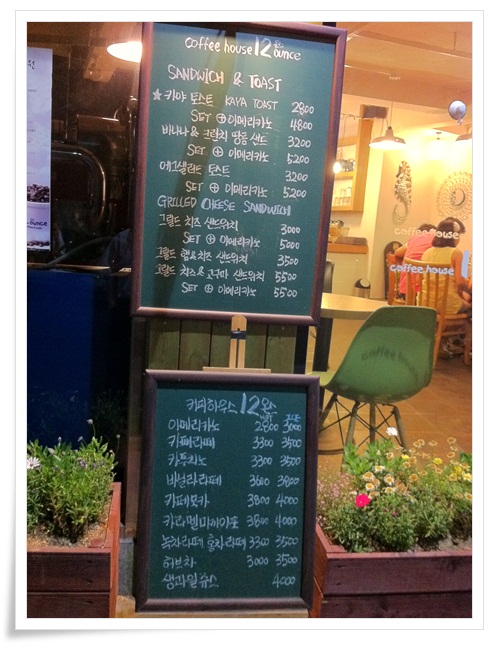 coffee house 12 온스 ounce
SANDWICH & TOAST
★ 카야 토스트 KAYA TOAST 2800
SET ⊕ 아메리카노 4800
바나나 & 크런치 땅콩 샌드 3200
SET ⊕ 아메리카노 5200
에그샐러드 토스트 3200
SET ⊕ 아메리카노 5200
GRILLED CHEESE SANDWICH
그릴드 치즈 샌드위치 3000
SET ⊕ 아메리카노 5000
그릴드 햄&치즈 샌드위치 3500
그릴드 치즈& 고구마 샌드위치 5500
SET ⊕ 아메리카노 5500
coffee house
coffee house 1
커피하우스 12 온스
아메리카노 2800 3000
카페라떼 3300 3500
카푸치노 3300 3500
바닐라라떼 3600 3800
카페모카 3800 4000
카라멜마끼아또 3800 4000
녹차라떼 홍차라떼 3300 3500
허브차 3000 3500
생과일쥬스 4000